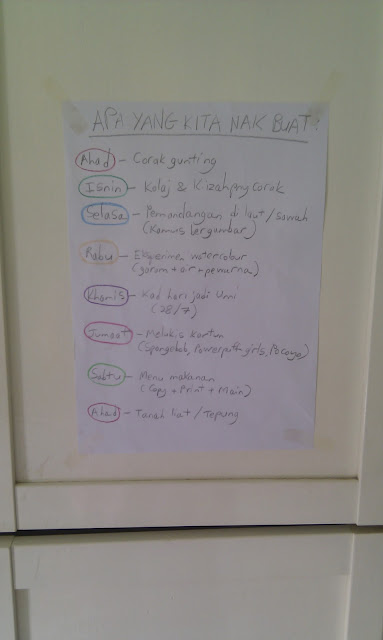 APA YANG KITA NAK BUAT:
Ahad - Corak gunting
Isnin - Kolaj & Kizahpng corak
Selasa - Pemandangan di laut / sawah
(Kamus bergambar)
Rabu - Eksperimen watercolour
(garam + air + pewarna)
Khamis - Kad hari jadi Umi
(28/7)
Jumaat - Melukis kartun
(Spongebob, Powerpuff girls, Pocoyo)
Sabtu - Menu makanan
(Copy + Print + Main)
Ahad - Tanah liat / Tepung